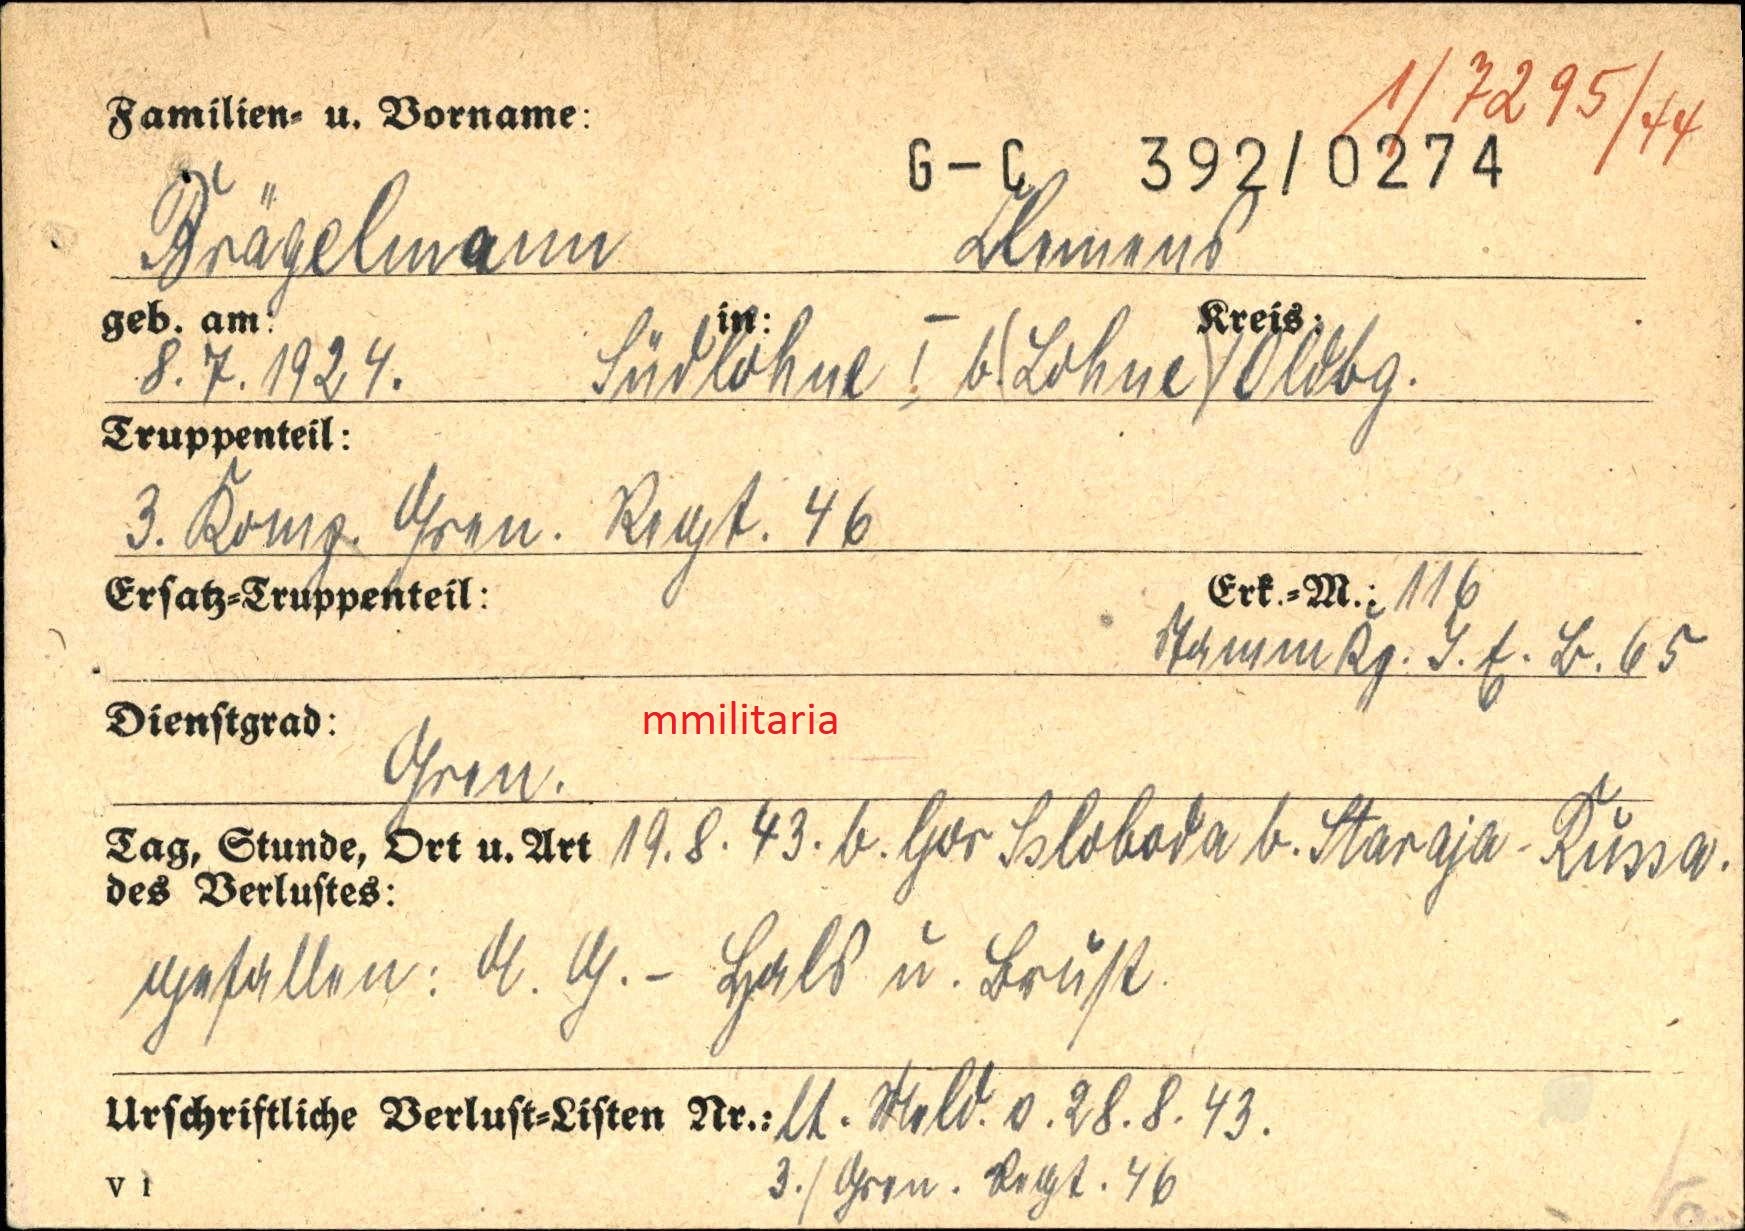 1/7295/44
Familien- u. Vorname:
G-C 392/0274
Brägelmann Clemens
geb. am: in: Kreis:
8.7.1924. Südlohne I b.(Lohne)/Oldbg.
Truppenteil:
3. Komp. Gren. Regt. 46
Ersatz-Truppenteil: Erk.-M.: 116
Stamm Kp. I. E. B. 65
Dienstgrad:
mmilitaria
Gren.
Tag, Stunde, Ort u. Art 19.8.43. b. Gor Ssloboda b. Staraja-Russa.
des Verlustes:
gefallen: A. G. - Hals u. Brust
Urschriftliche Verlust-Listen Nr.: lt. Meld. v. 28.8.43.
V 1 3./Gren. Regt. 46